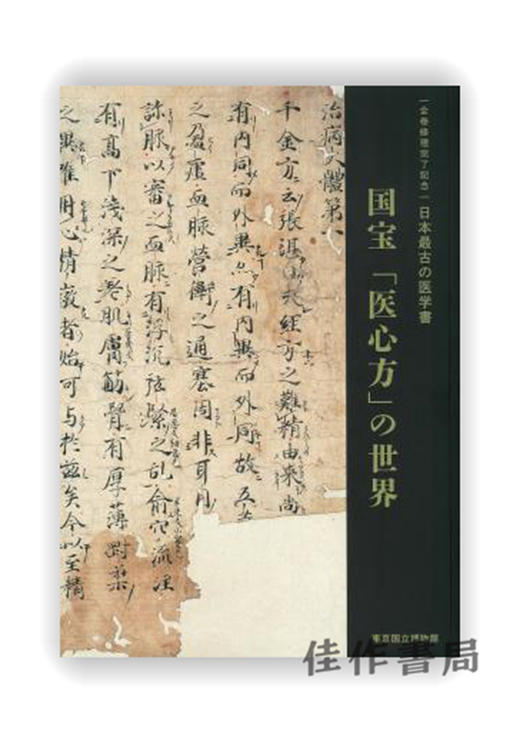 全巻修理完了記念 日本最古の医学書
国宝「医心方」の世界
東京国立博物館
治病大體第一
千金方云張湛曰夫經方之難精由来尚
有内同而外異亦有内異而外同故五
之盈虚血脉營衛之通塞固非耳目
診脉以審之而脉有浮沉弦緊之乱俞穴流注
有高下浅深之差肌膚筋骨有厚薄剛柔
之異唯用心情微者始可与於兹矣今以至精
佳作書局